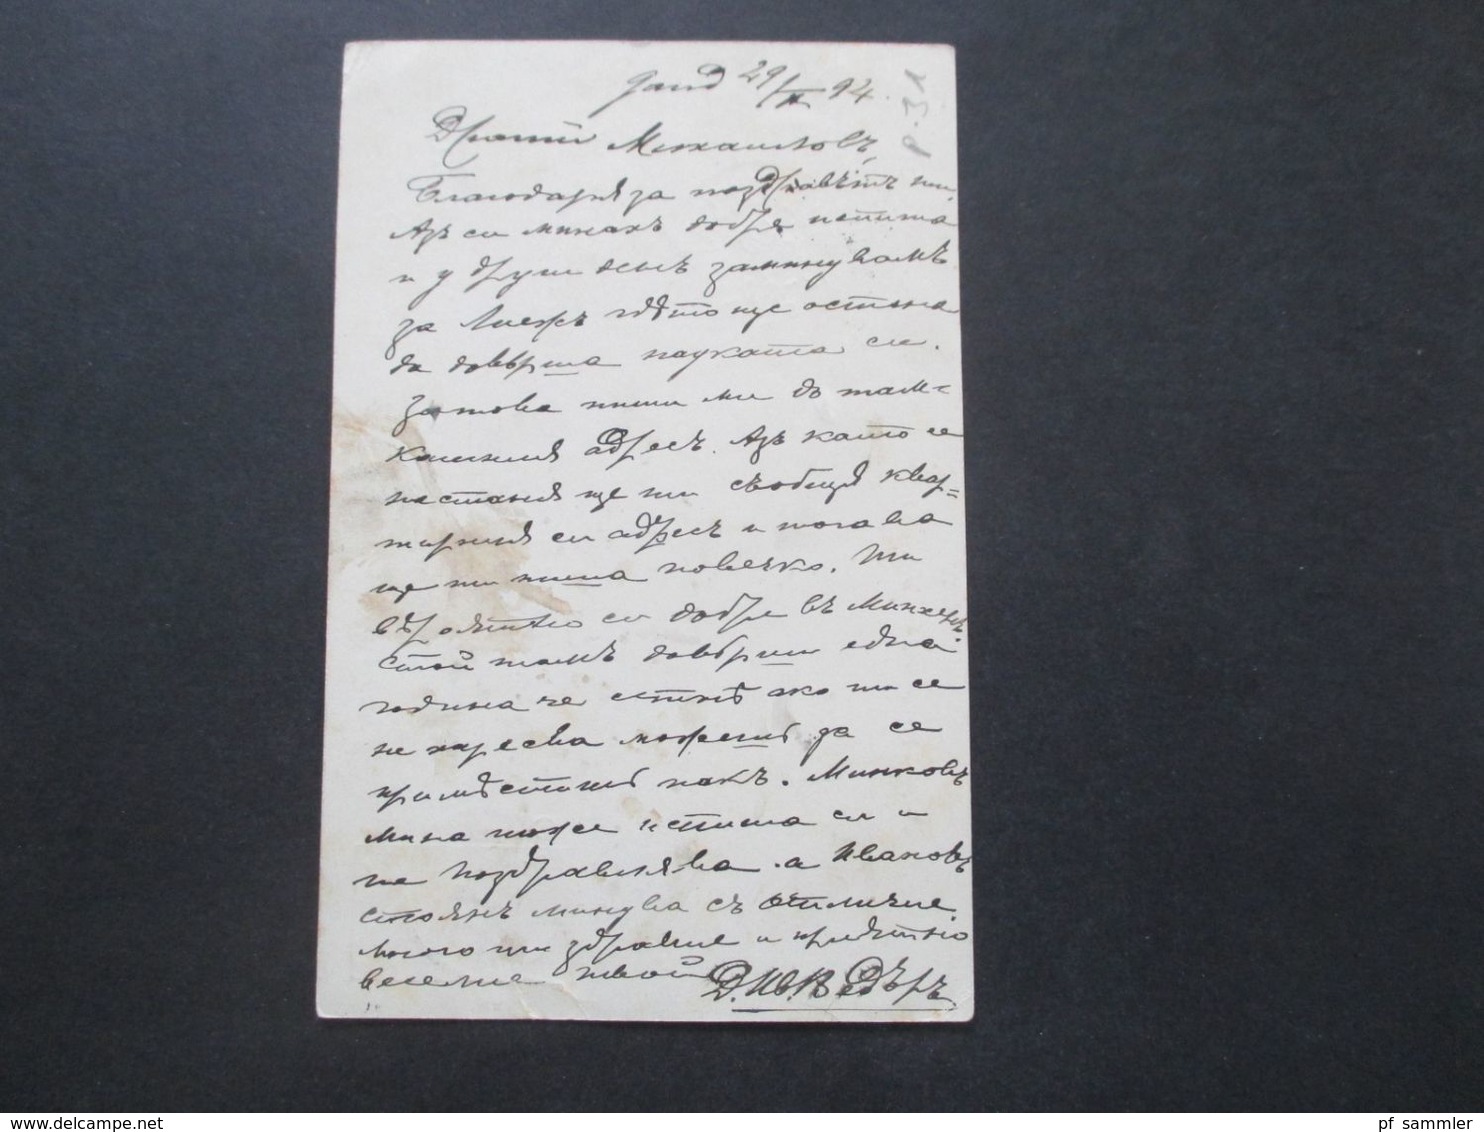 Gand 29/X 94.
P.31
Драгий Михаиловъ,
Благодаря за поздравътъ ти.
Азъ си минахъ добре испита
и у други день заминувамъ
за Лиежъ гдѣто ще остана
да довърша науката си.
Затова пиши ми до там-
кашния адресъ. Азъ като се
настаня ще ти съобщя квар=
тирния си адресъ и тогава
ще ти пиша повечко. Ти
вѣроятно си добре въ
стой тамъ довърши една
година че сетнѣ ако ти се
не харесва можешъ да се
примѣстишъ пакъ. Минковъ
мина тоже испита си и
те поздравлява. а Ивановъ
Стоянъ минува съ отличие.
Много ти здравие и приятно
веселие твой Д. Ив. Ведъръ
pf_sammler